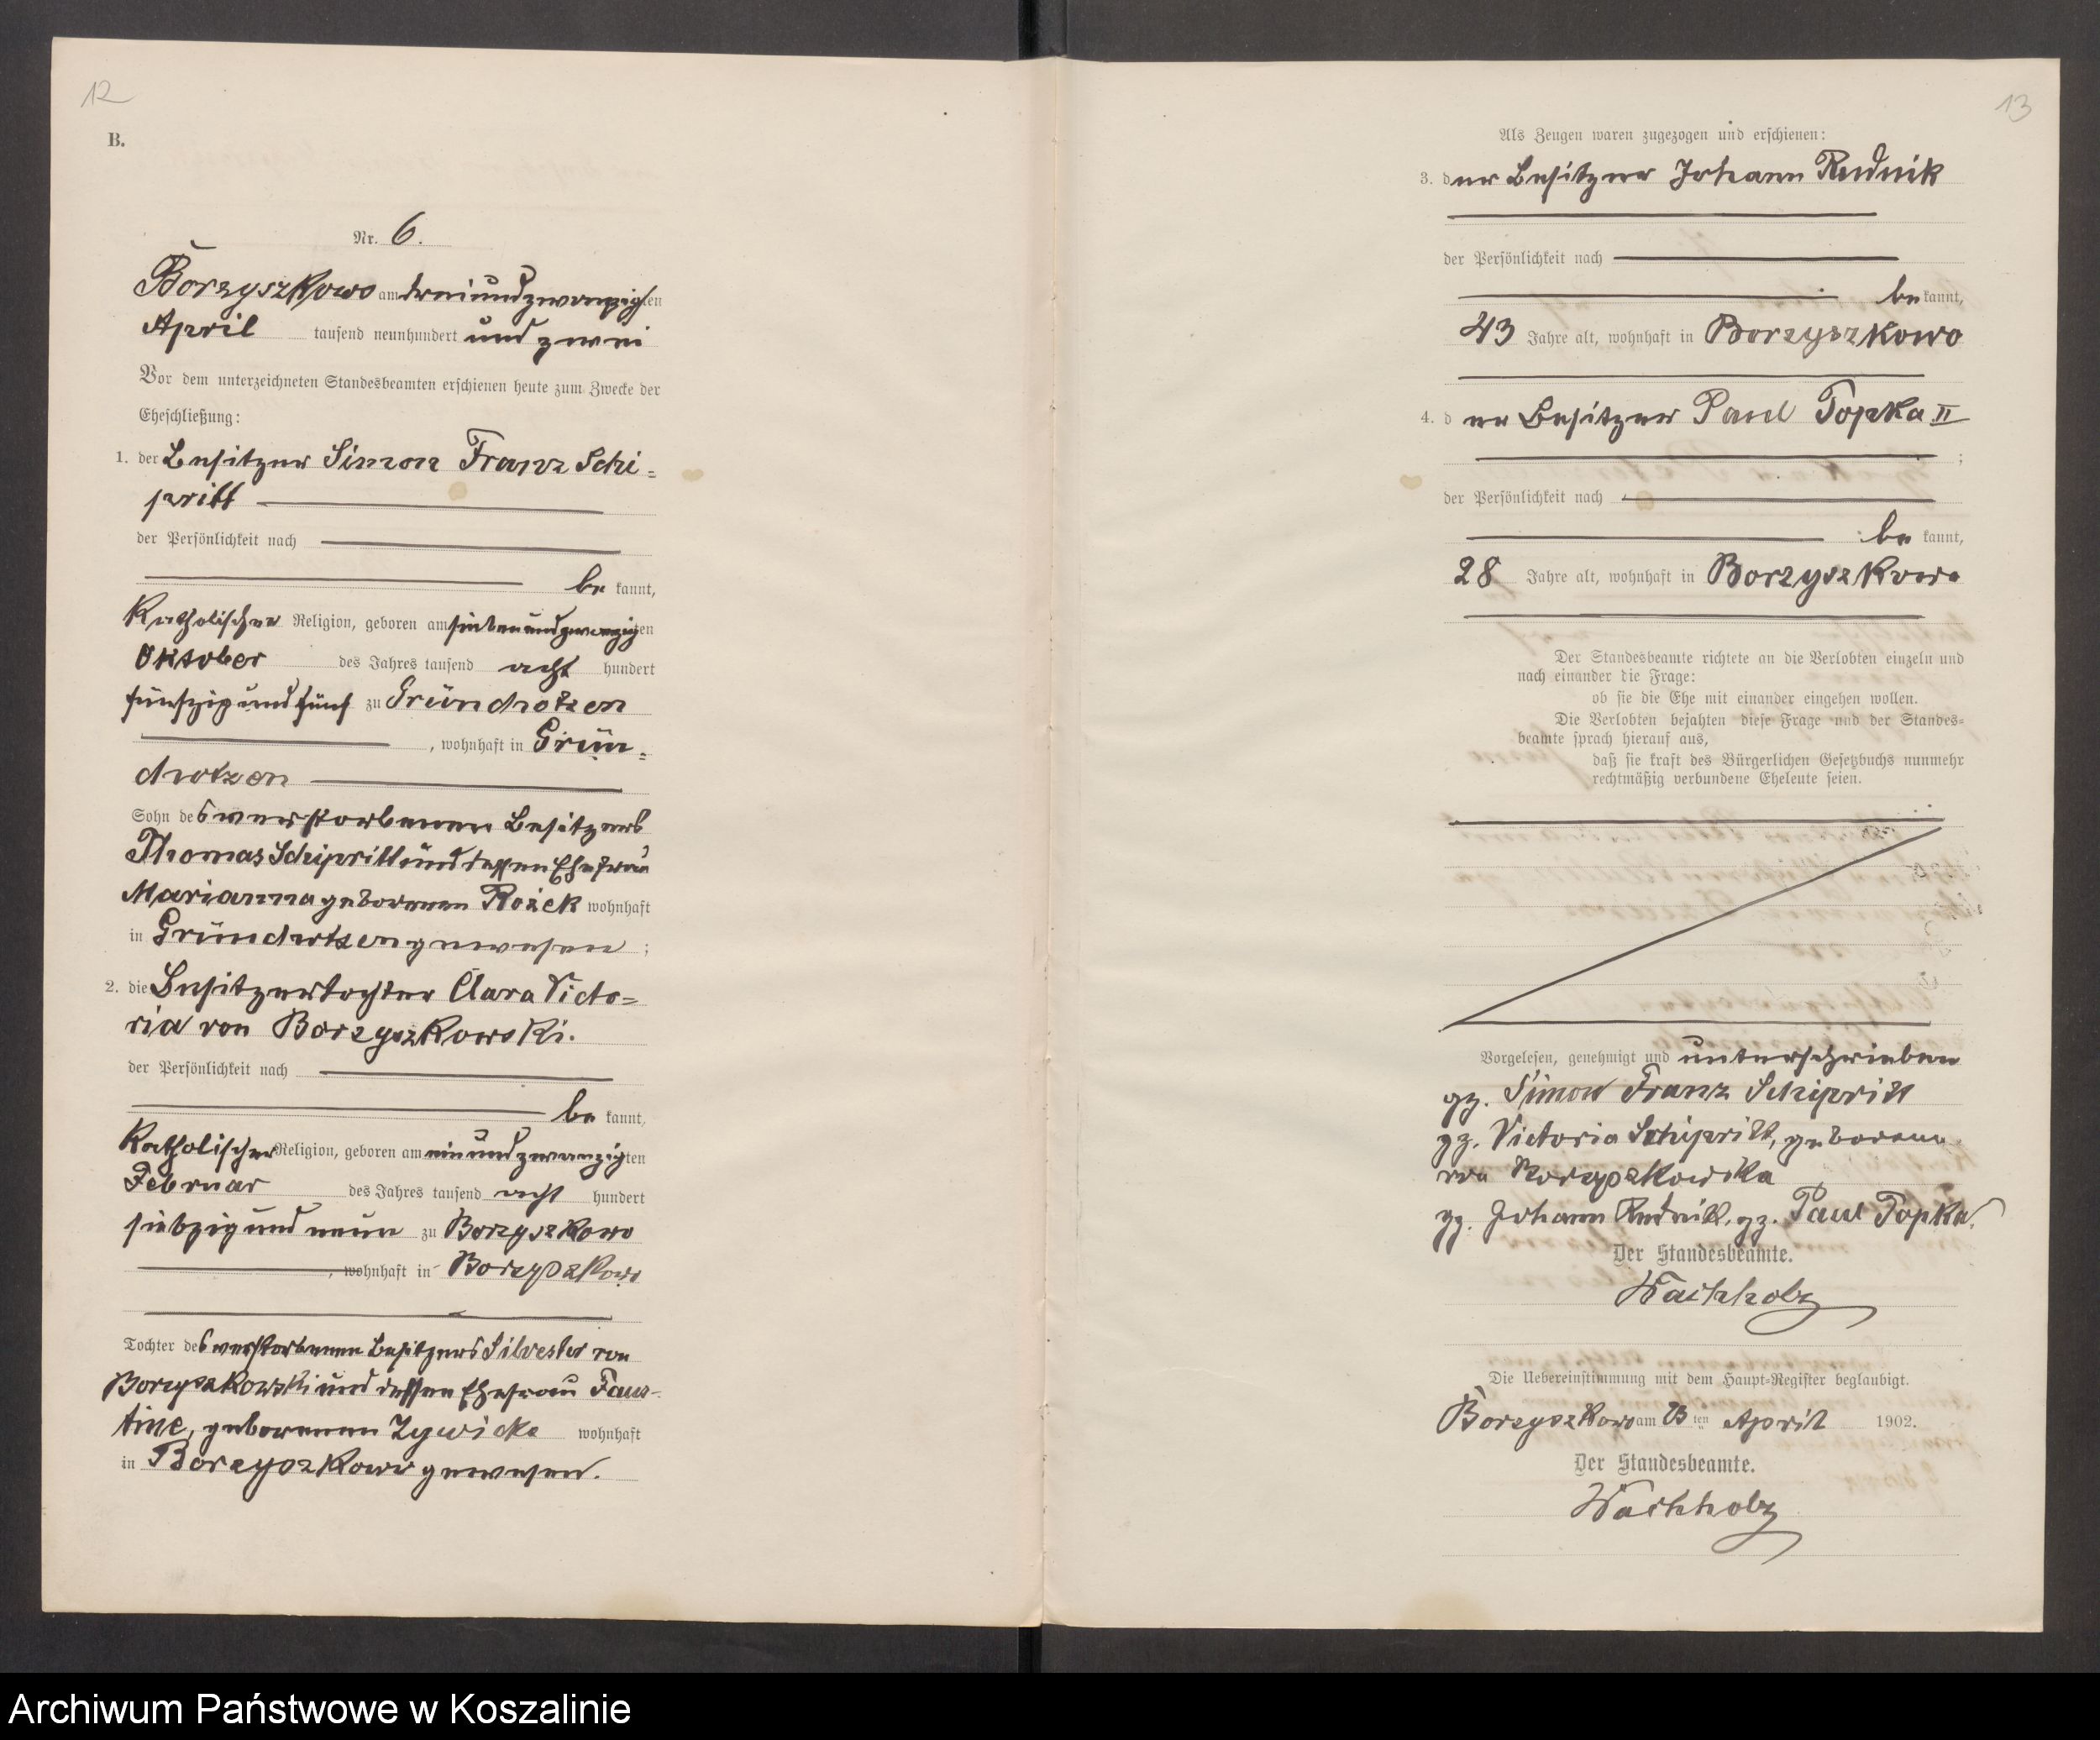 12
B.
Nr. 6.
Borzyszkowo am dreiundzwanzigten
April tausend neunhundert und zwei
Vor dem unterzeichneten Standesbeamten erschienen heute zum Zwecke der
Eheschließung:
1. der Besitzer Simon Franz Schi=
pritt
der Persönlichkeit nach
be kannt,
Katholischer Religion, geboren am siebenundzwanzigten
Oktober des Jahres tausend acht hundert
fünfzig und fünf zu Gründtotzen
, wohnhaft in Grün=
chotzen
Sohn des verstorbenen Besitzers
Thomas Schipritt und dessen Ehefrau
Marianna geborenen Rożek wohnhaft
in Gründchotzen gewesen ;
2. die Besitzertochter Clara Victo=
ria von Borzyszkowski.
der Persönlichkeit nach
be kannt,
Katholischer Religion, geboren am einundzwanzigten
Februar des Jahres tausend acht hundert
siebzig und neun zu Borzyszkowo
, wohnhaft in Borzyszkowo
Tochter des verstorbenen Besitzers Silvester von
Borzyszkowski und dessen Ehefrau Faus-
tine, geborenen Zywicka wohnhaft
in Borzyszkowo gewesen.
13
Als Zeugen waren zugezogen und erschienen:
3. der Besitzer Johann Rudnik
der Persönlichkeit nach
be kannt,
43 Jahre alt, wohnhaft in Borzyszkowo
4. der Besitzer Paul Topka II
;
der Persönlichkeit nach
be kannt,
28 Jahre alt, wohnhaft in Borzyszkowo
Der Standesbeamte richtete an die Verlobten einzeln und
nach einander die Frage:
ob sie die Ehe mit einander eingehen wollen.
Die Verlobten bejahten diese Frage und der Standes=
beamte sprach hierauf aus,
daß sie kraft des Bürgerlichen Gesetzbuchs nunmehr
rechtmäßig verbundene Eheleute seien.
Vorgelesen, genehmigt und unterschrieben
gz. Simon Franz Schipritt
gz. Victoria Schipritt, geborene
von Borzyszkowska
gz. Johann Rudnik, gz. Paul Topka.
Der Standesbeamte.
Wachholz
Die Uebereinstimmung mit dem Haupt=Register beglaubigt.
Borzyszkowo am 23 ten April 1902.
Der Standesbeamte.
Wachholz
Archiwum Państwowe w Koszalinie